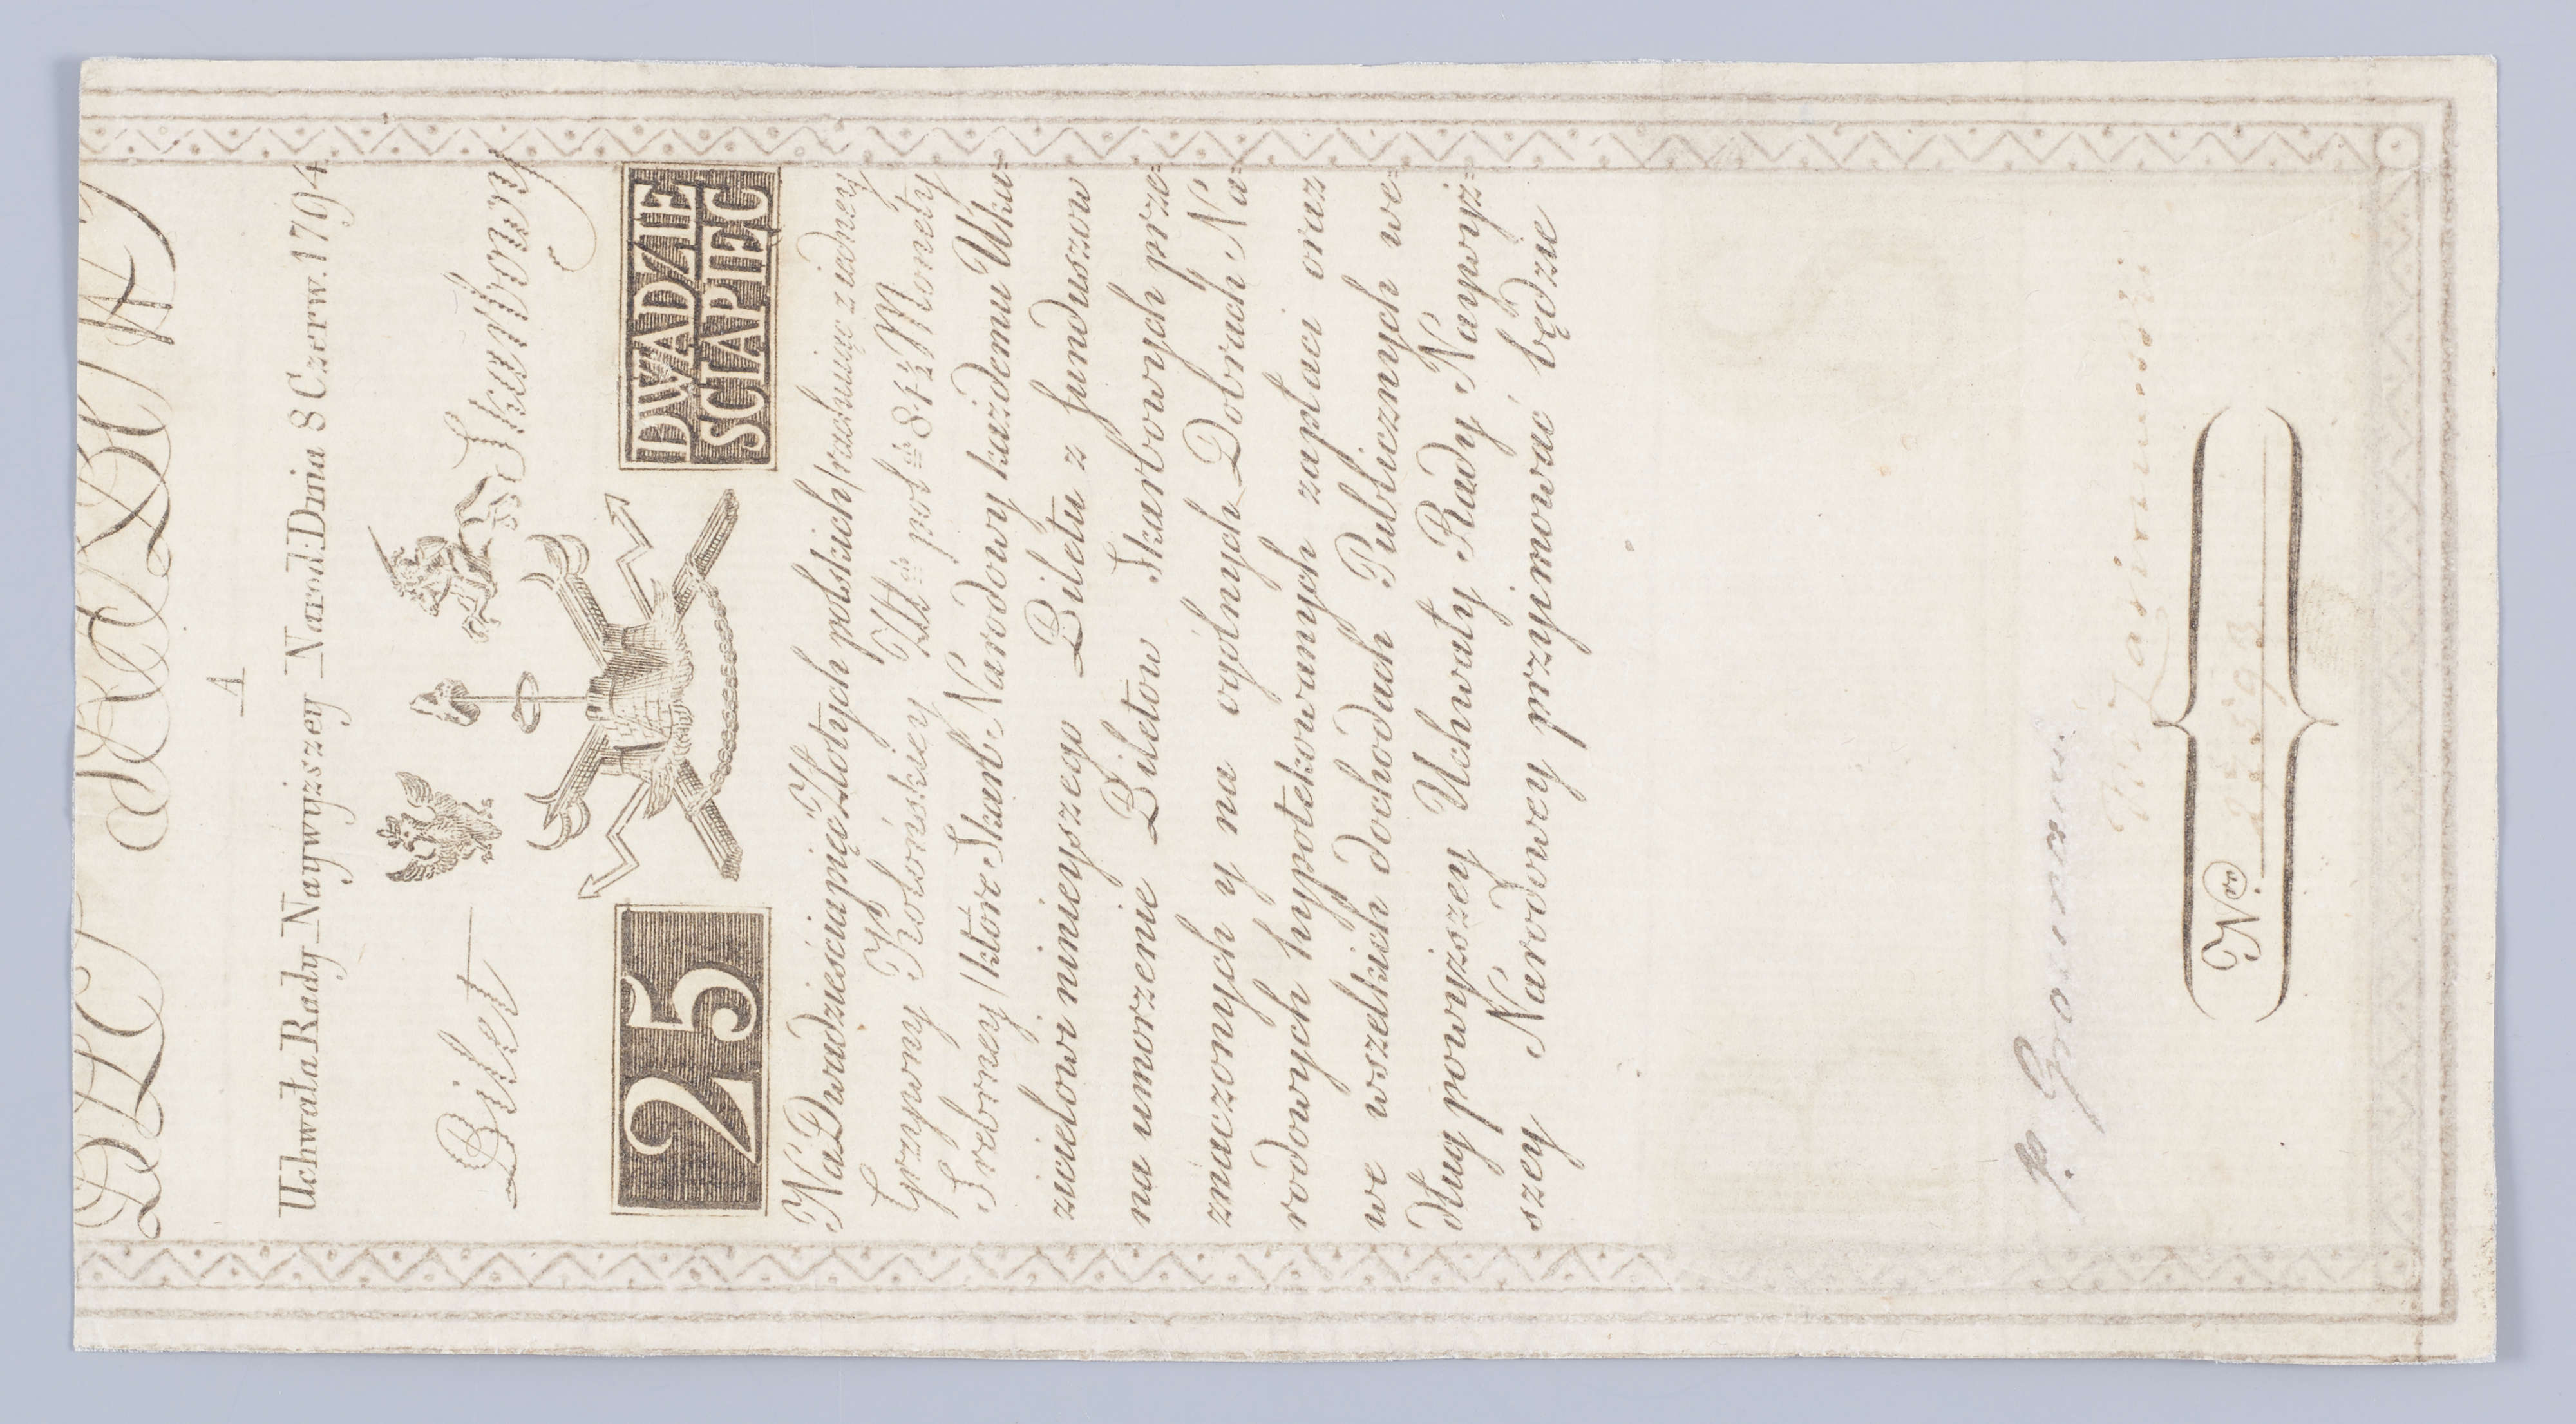 A
Uchwała Rady Naywyższey Narod: Dnia 8 Czerw. 1794
Bilet Skarbowy
25
DWADZIE
SCIA PIĘC
Na Dwadzieścia pięć Złotych polskich / rachuiąc z iedney
Grzywny Kolońskiey Złł:ch pol:ch 84½ Monety
Srebrney / które Skarb Narodowy każdemu Uka=
zicielowi ninieyszego Biletu z funduszow
na umorzenie Biletow Skarbowych prze=
znaczonych y na ogólnych Dobrach Na=
rodowych hypotekowanych zapłaci oraz
we wszelkich dochodach Publicznych we=
dług powyższey Uchwały Rady Naywyż=
szey Narodowey przyimować będzie
Nro